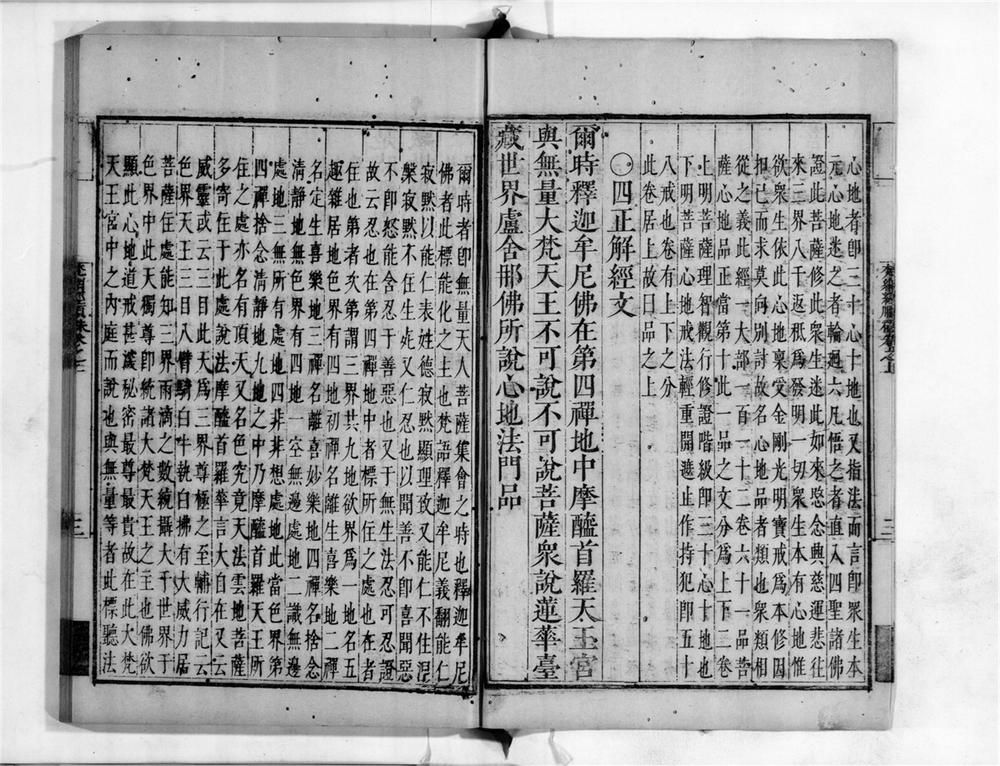 心地者即三十心十地也又指法而言即眾生本
元心地迷之者輪迴六凡悟之者直入四聖諸佛
證此菩薩修此眾生迷此如來愍念興慈運悲往
來三界八千返秖為發明一切眾生本有心地惟
欲眾生依此心地稟受金剛光明寶戒為本修因
扣己而求莫向別討故名心地品者類也眾類相
從之義此經一大部一百一十二卷六十一品菩
薩心地品正當第十此一品之文分為上下二卷
上明菩薩理智觀行修證階級即三十心十地也
下明菩薩心地戒法輕重開遮止作持犯即五十
八戒也卷有上下之分品無上下之分
此卷居上故曰品之上
〇四正解經文
爾時釋迦牟尼佛在第四禪地中摩醯首羅天王宮
與無量大梵天王不可說不可說菩薩眾說蓮華臺
藏世界盧舍那佛所說心地法門品
爾時者即無量天人菩薩集會之時也釋迦牟尼
佛者此標能化之主也梵語釋迦牟尼義翻能仁
寂默以能仁表姓德寂默顯理致又能仁不住涅
槃寂默不住生死又仁忍也以聞善不即喜聞惡
不即怒能含忍于善惡也又于無生法忍可忍證
故云忍也在第四禪地中者標所住之處也在者
住也第者次第謂三界共九地欲界為一地名五
趣雜居地色界有四地初禪名離生喜樂地二禪
名定生喜樂地三禪名離喜妙樂地四禪名捨念
清淨地無色界有四地一空無邊處地二識無邊
處地三無所有處地四非非想處地此當色界第
四禪捨念清淨地九地之中乃摩醯首羅天王所
住之處亦名有頂天又名色究竟天法雲地菩薩
多寄住于此處說法摩醯首羅華言大自在又云
威靈或云三目此天為三界尊極之至輔行記云
色界天王三目八臂騎白牛執白拂有大威力居
菩薩住處能知三界雨滴之數統攝大千世界于
色界中此天獨尊即統諸大梵天王之主也佛欲
顯此心地道戒甚深秘密最尊最貴故在此大梵
天王宮中之內庭而說也與無量等者此標聽法